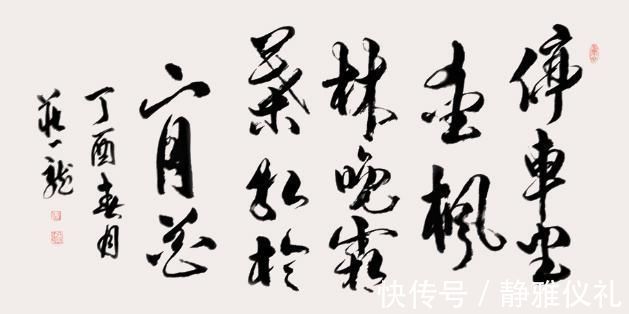 停車坐
愛楓
林晚霜
葉紅於
二月花
丁酉春月
快传号 / 静雅仪礼